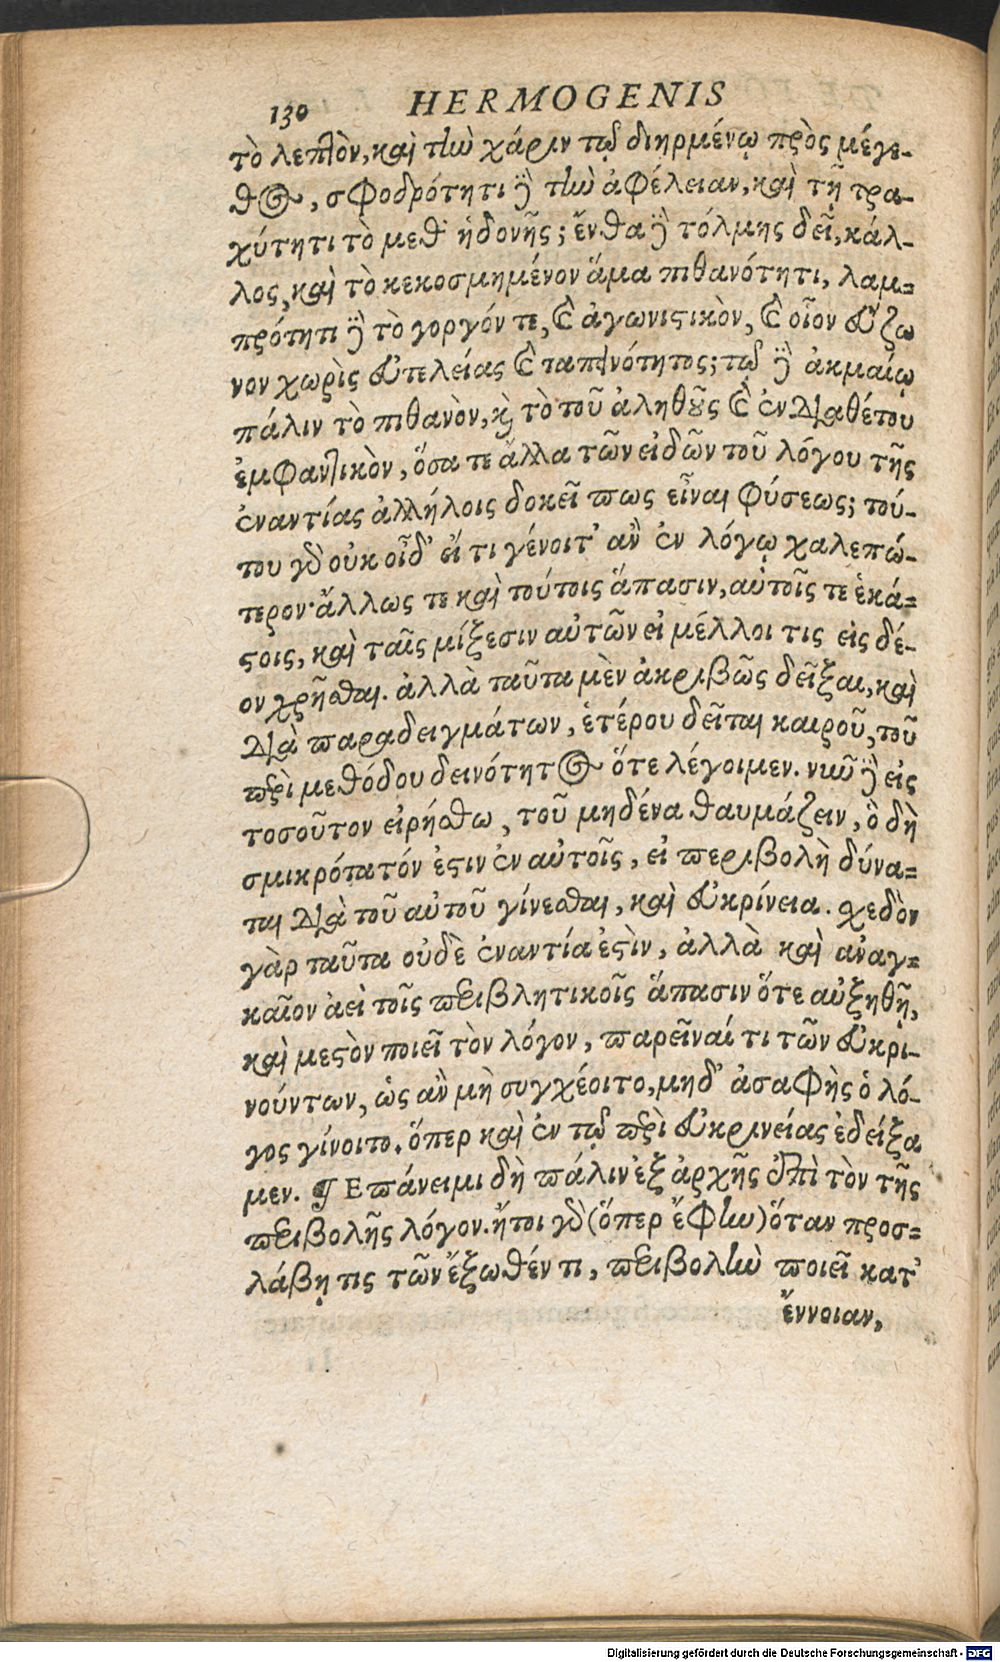 130 HERMOGENIS
τὸ λεπτὸν, καὶ τὴν χάριν τῷ διηρμένῳ πρὸς μέγε-
θος, σφοδρότητι δὲ τὴν ἀφέλειαν, καὶ τῇ τρα-
χύτητι τὸ μεθ᾽ ἡδονῆς; ἔνθα δὲ τόλμης δεῖ, κάλ-
λος, καὶ τὸ κεκοσμημένον ἅμα πιθανότητι, λαμ-
πρότητι δὲ τὸ γοργόν τε, καὶ ἀγωνιστικὸν, καὶ οἷον εὔζω
νον χωρὶς εὐτελείας καὶ ταπεινότητος; τῷ δὲ ἀκμαίῳ
πάλιν τὸ πιθανὸν, καὶ τὸ τοῦ ἀληθοῦς καὶ ἐνδιαθέτου
ἐμφαντικὸν, ὅσα τε ἄλλα τῶν εἰδῶν τοῦ λόγου τῆς
ἐναντίας ἀλλήλοις δοκεῖ πως εἶναι φύσεως; τού-
του γὰρ οὐκ οἶδ᾽ εἴ τι γένοιτ᾽ ἂν ἐν λόγῳ χαλεπώ-
τερον· ἄλλως τε καὶ τούτοις ἅπασιν, αὐτοῖς τε ἑκά-
στοις, καὶ ταῖς μίξεσιν αὐτῶν εἰ μέλλοι τις εἰς δέ-
ον χρῆσθαι. ἀλλὰ ταῦτα μὲν ἀκριβῶς δεῖξαι, καὶ
διὰ παραδειγμάτων, ἑτέρου δεῖται καιροῦ, τοῦ
περὶ μεθόδου δεινότητος ὅτε λέγοιμεν. νῦν δὲ εἰς
τοσοῦτον εἰρήσθω, τοῦ μηδένα θαυμάζειν, ὃ δὴ
σμικρότατόν ἐστιν ἐν αὐτοῖς, εἰ περιβολὴ δύνα-
ται διὰ τοῦ αὐτοῦ γίνεσθαι, καὶ εὐκρίνεια. σχεδὸν
γὰρ ταῦτα οὐδὲ ἐναντία ἐστὶν, ἀλλὰ καὶ ἀναγ-
καῖον ἀεὶ τοῖς περιβλητικοῖς ἅπασιν ὅτε αὐξηθῇ,
καὶ μεστὸν ποιεῖ τὸν λόγον, παρεῖναί τι τῶν εὐκρι-
νούντων, ὡς ἂν μὴ συγχέοιτο, μηδ᾽ ἀσαφὴς ὁ λό-
γος γίνοιτο. ὅπερ καὶ ἐν τῷ περὶ εὐκρινείας ἐδείξα
μεν. ¶ Ἐπάνειμι δὴ πάλιν ἐξ ἀρχῆς ἐπὶ τὸν τῆς
περιβολῆς λόγον. ἤτοι γὰρ (ὅπερ ἔφην) ὅταν προσ-
λάβῃ τις τῶν ἔξωθέν τι, περιβολὴν ποιεῖ κατ᾽
ἔννοιαν,
Digitalisierung gefördert durch die Deutsche Forschungsgemeinschaft - DFG